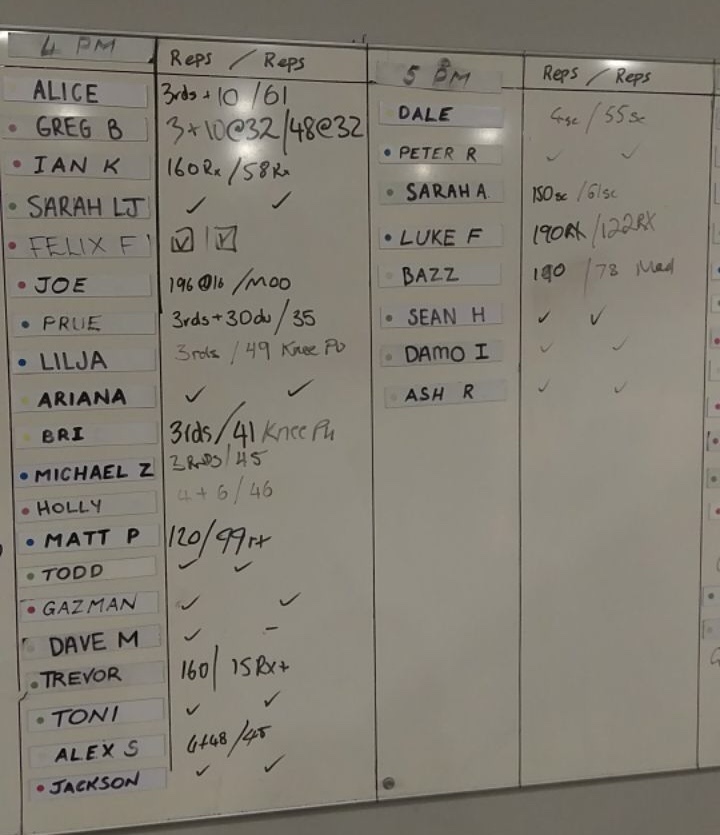 4 PM Reps / Reps
ALICE 3rds + 10 / 61
GREG B 3+10@32/48@32
IAN K 160Rx/58Rx
SARAH LJ ✓ ✓
FELIX F ☑ | ☑
JOE 196@16 /MOD
PRUE 3rds+30du/35
LILJA 3rds / 49 Knee Pu
ARIANA ✓ ✓
BRI 3rds/41 Knee Pu
MICHAEL Z 3RNDS/45
HOLLY 4+6/46
MATT P 120/99rx
TODD ✓ ✓
GAZMAN ✓ ✓
DAVE M ✓ -
TREVOR 160/ 15Rx+
TONI ✓ ✓
ALEX S 4+48/45
JACKSON ✓ ✓
5 PM Reps / Reps
DALE 4sc / 55sc
PETER R ✓ ✓
SARAH A. 150sc /61sc
LUKE F 190RX/122RX
BAZZ 190 /78 Mod
SEAN H ✓ ✓
DAMO I ✓ ✓
ASH R ✓ ✓